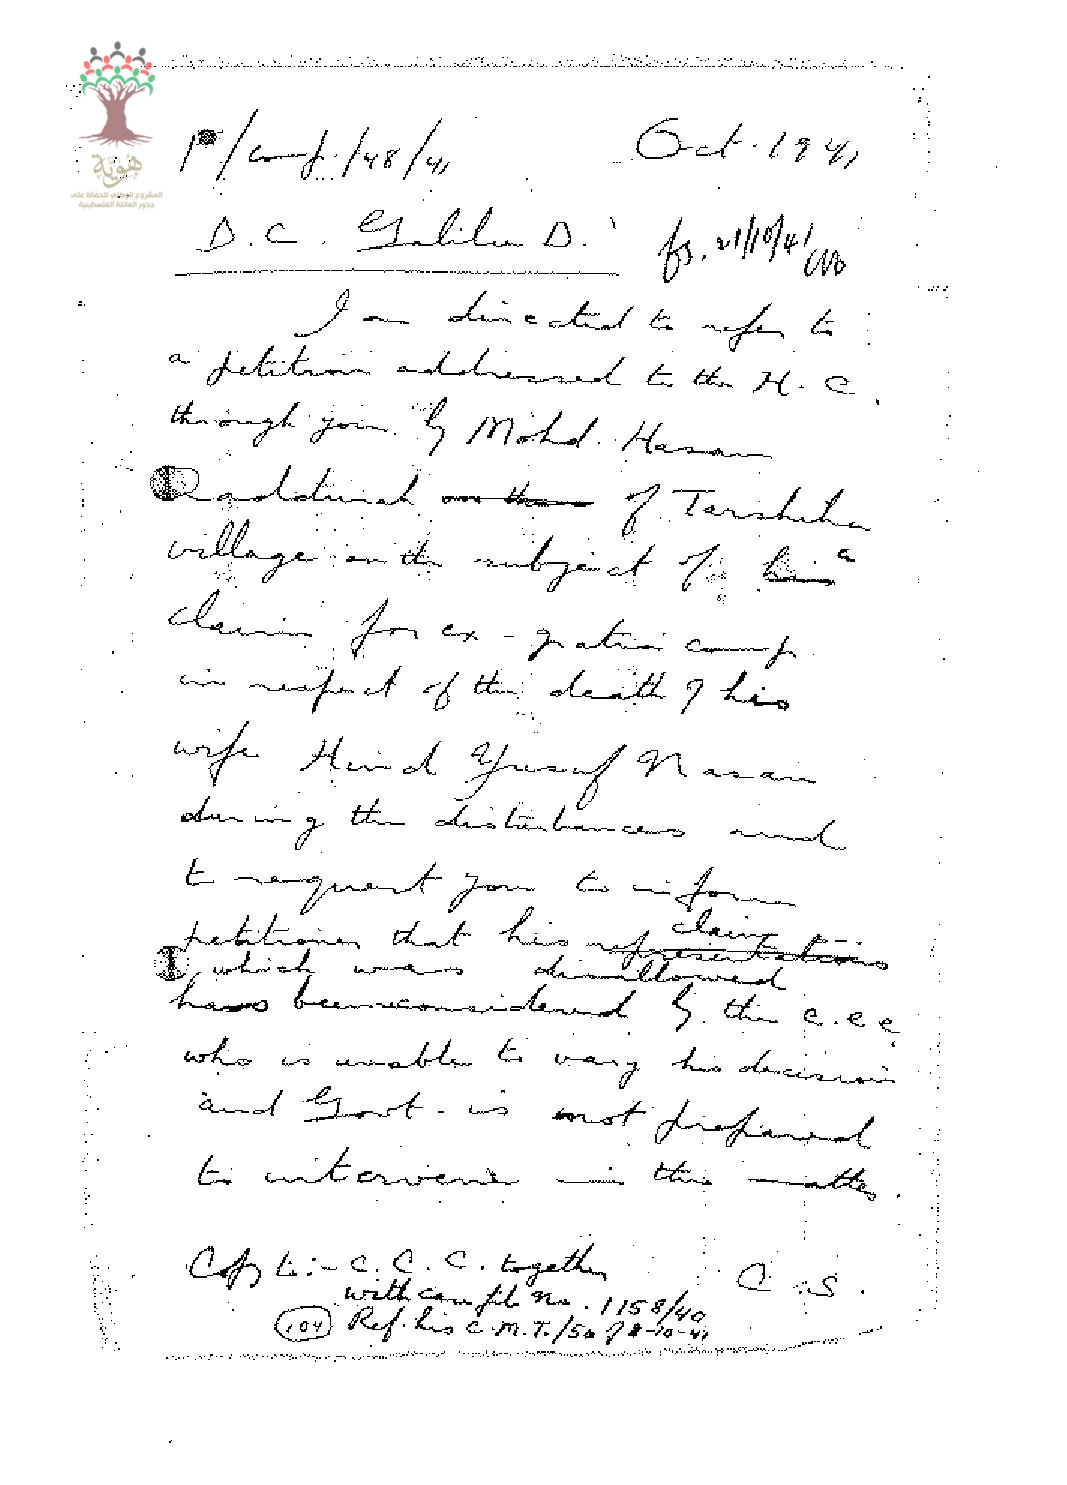 هوية
المشروع الوطني للحفاظ على
جذور العائلة الفلسطينية
P/Comp./48/41 Oct. 1941
D.C. Galilee D. fs. 21/10/41
I am directed to refer to
a petition addressed to the H.C.
through you by Mohd. Hasan
of Tarshiha
village on the subject of his a
claim for ex-gratia comp
in respect of the death of his
wife Hind Yusuf Hasan
during the disturbances and
to request you to inform
petitioner that his representations claim
which was disallowed
has been reconsidered by the C.C.C.
who is unable to vary his decision
and Govt. is not prepared
to intervene in this matter.
C.S.
Copy to:- C.C.C. together
with comp file No. 1158/40
(104) Ref. his C.M.T./50 of 8-10-41